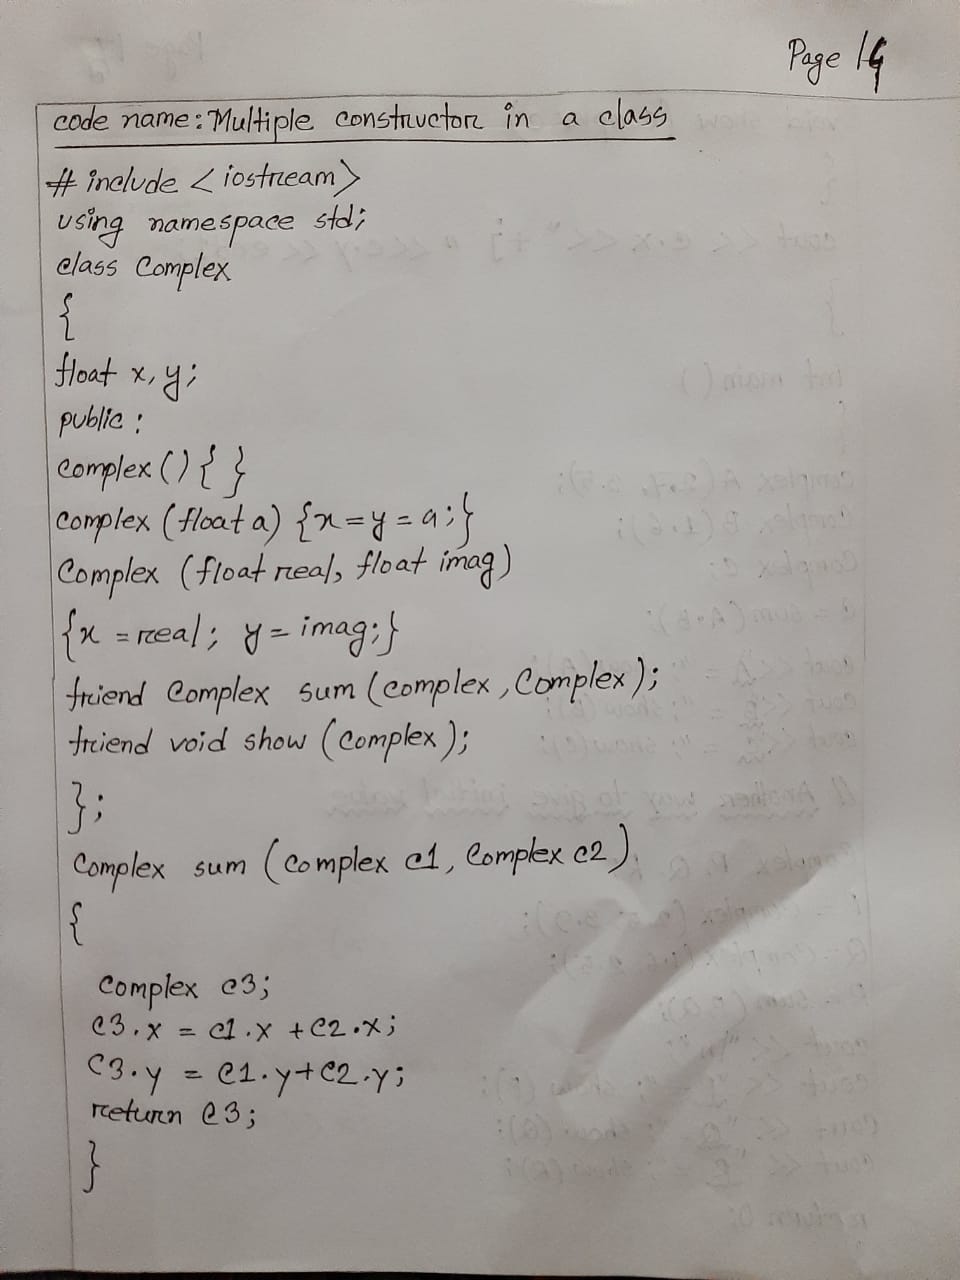 Page 14
code name: Multiple constructor in a class
# include <iostream>
using namespace std;
class Complex
{
float x, y;
public :
Complex () { }
Complex (float a) {x=y=a;}
Complex (float real, float imag)
{x = real; y = imag;}
friend Complex sum (complex, Complex);
friend void show (complex);
};
Complex sum (complex c1, Complex c2)
{
Complex c3;
c3.x = c1.x + c2.x;
c3.y = c1.y + c2.y;
return c3;
}